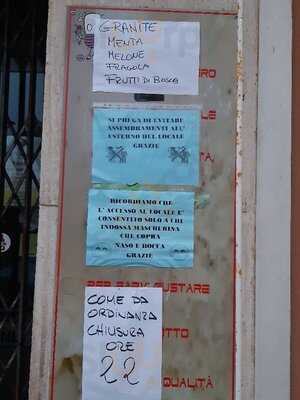 GRANITE
MENTA
MELONE
FRAGOLA
FRUTTI DI BOSCO
SI PREGA DI EVITARE
ASSEMBRAMENTI ALL'
INTERNO DEL LOCALE
GRAZIE
RICORDIAMO CHE
L' ACCESSO AL LOCALE E'
CONSENTITO SOLO A CHI
INDOSSA MASCHERINA
CHE COPRA
NASO E BOCCA
GRAZIE
PER FARVI GUSTARE
COME DA
ORDINANZA
CHIUSURA
ORE
22
QUALITÀ